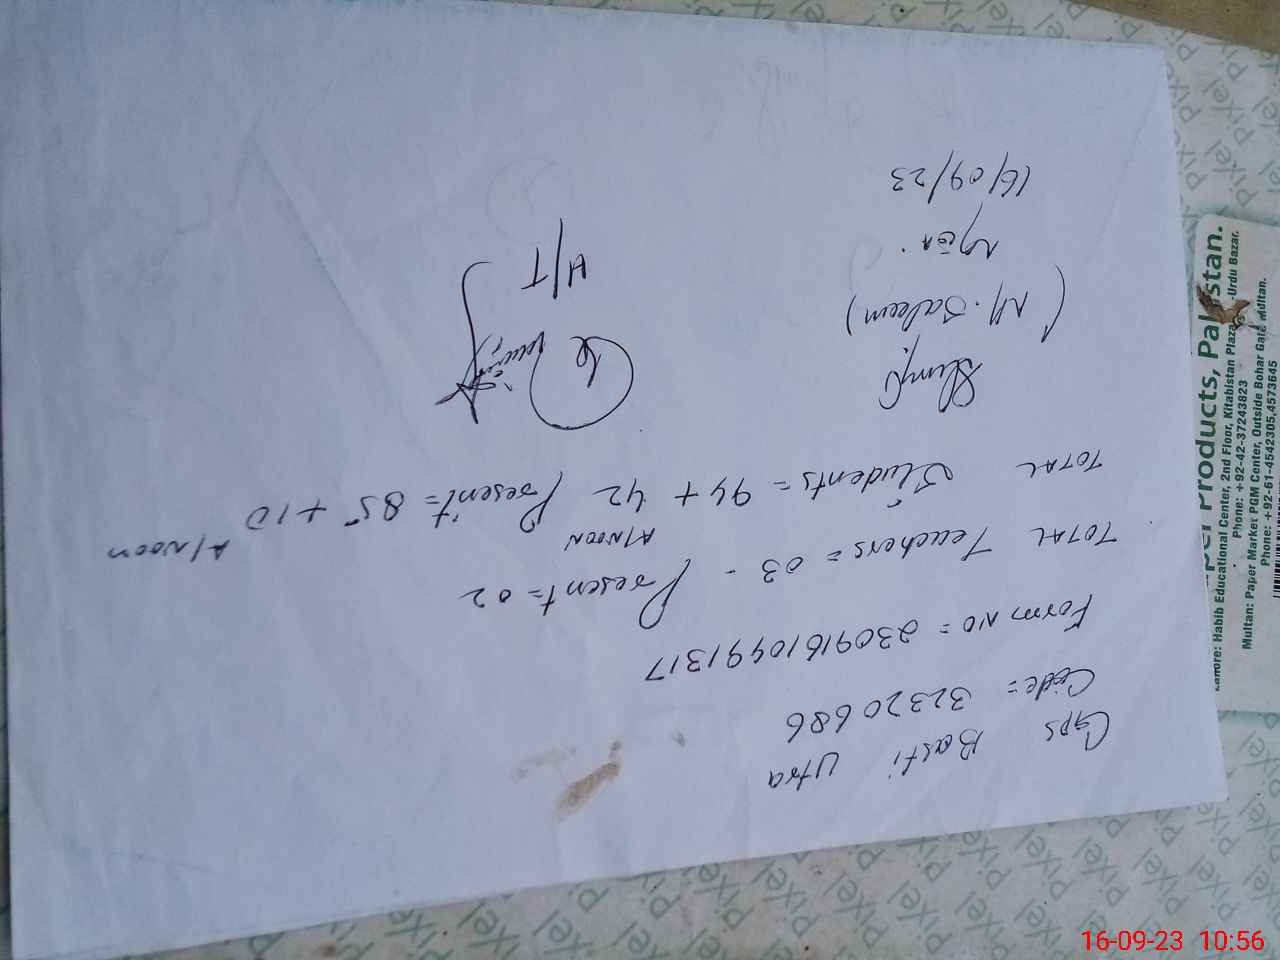 GPS Basti Utra
Code = 32320686
Form NO = 23091610491317
TOTAL Teachers = 03 - Present = 02
TOTAL Students = 94 + 42 Present = 85 + 10
A/NOON A/NOON
(M. Saleem)
H/T
16/09/23
Products, Pakistan.
Lahore: Habib Educational Center, 2nd Floor, Kitabistan Plaza Urdu Bazar.
Phone: +92-42-37243823
Multan: Paper Market PGM Center, Outside Bohar Gate Multan.
Phone: +92-61-4542305,4573645
PiXel
16-09-23 10:56